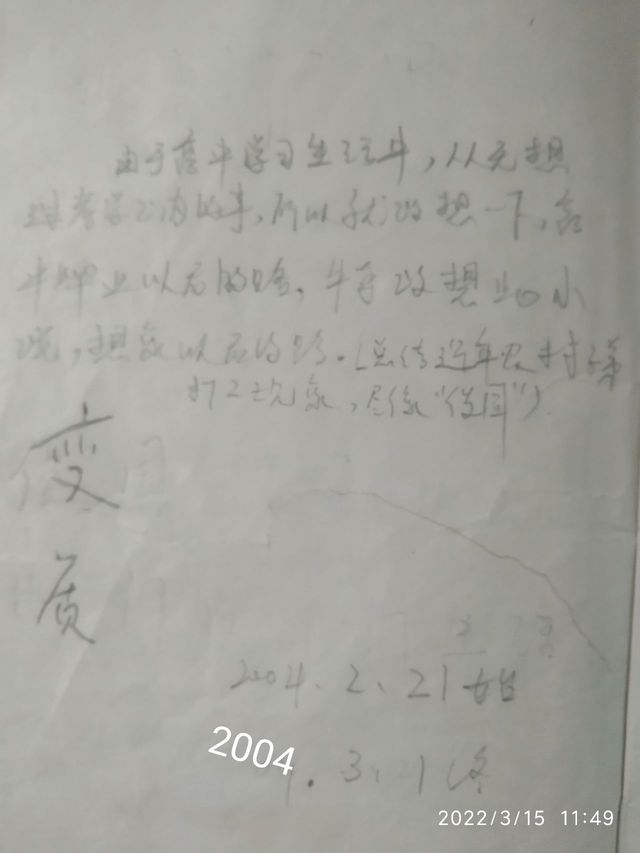 由于高中学习生活中，从无想
过考学以为的事，所以就设想一下，高
中毕业以后的路，牛奇设想出小
说，想象以后的路。(总结近年农村
打工现象，尽像"程图")
变
质
2004.2.21始
2004
.3.1终
2022/3/15 11:49